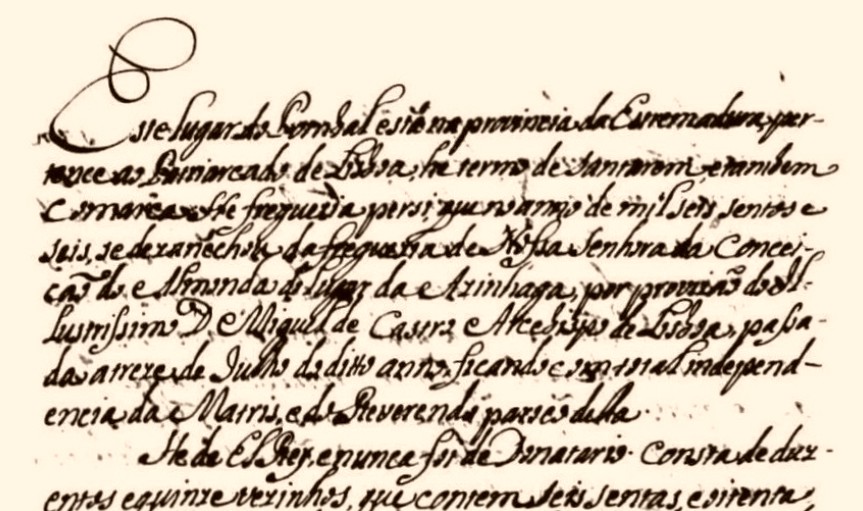 Este lugar do Pombal está na provincia da Estremadura, per-
tence ao Patriarcado de Lisboa, he termo de Santarem, e tambem
Comarca. He freguezia persi, que no anno de mil seis sentos e
seis, se dezanechou da freguezia de Nossa Senhora da Concei-
caõ do Almonda do lugar da Azinhaga, por provizaõ do Il-
lustrissimo D. Miguel de Castro Arcebispo de Lisboa, passa-
da a treze de Julho do ditto anno, ficando com total independ-
encia da Matris, e do Reverendo parsco della.
He de ElRey, e nunca foi de Donatario. Consta de duz-
entos e quinze vezinhos, que contem seis sentas, e oitenta,